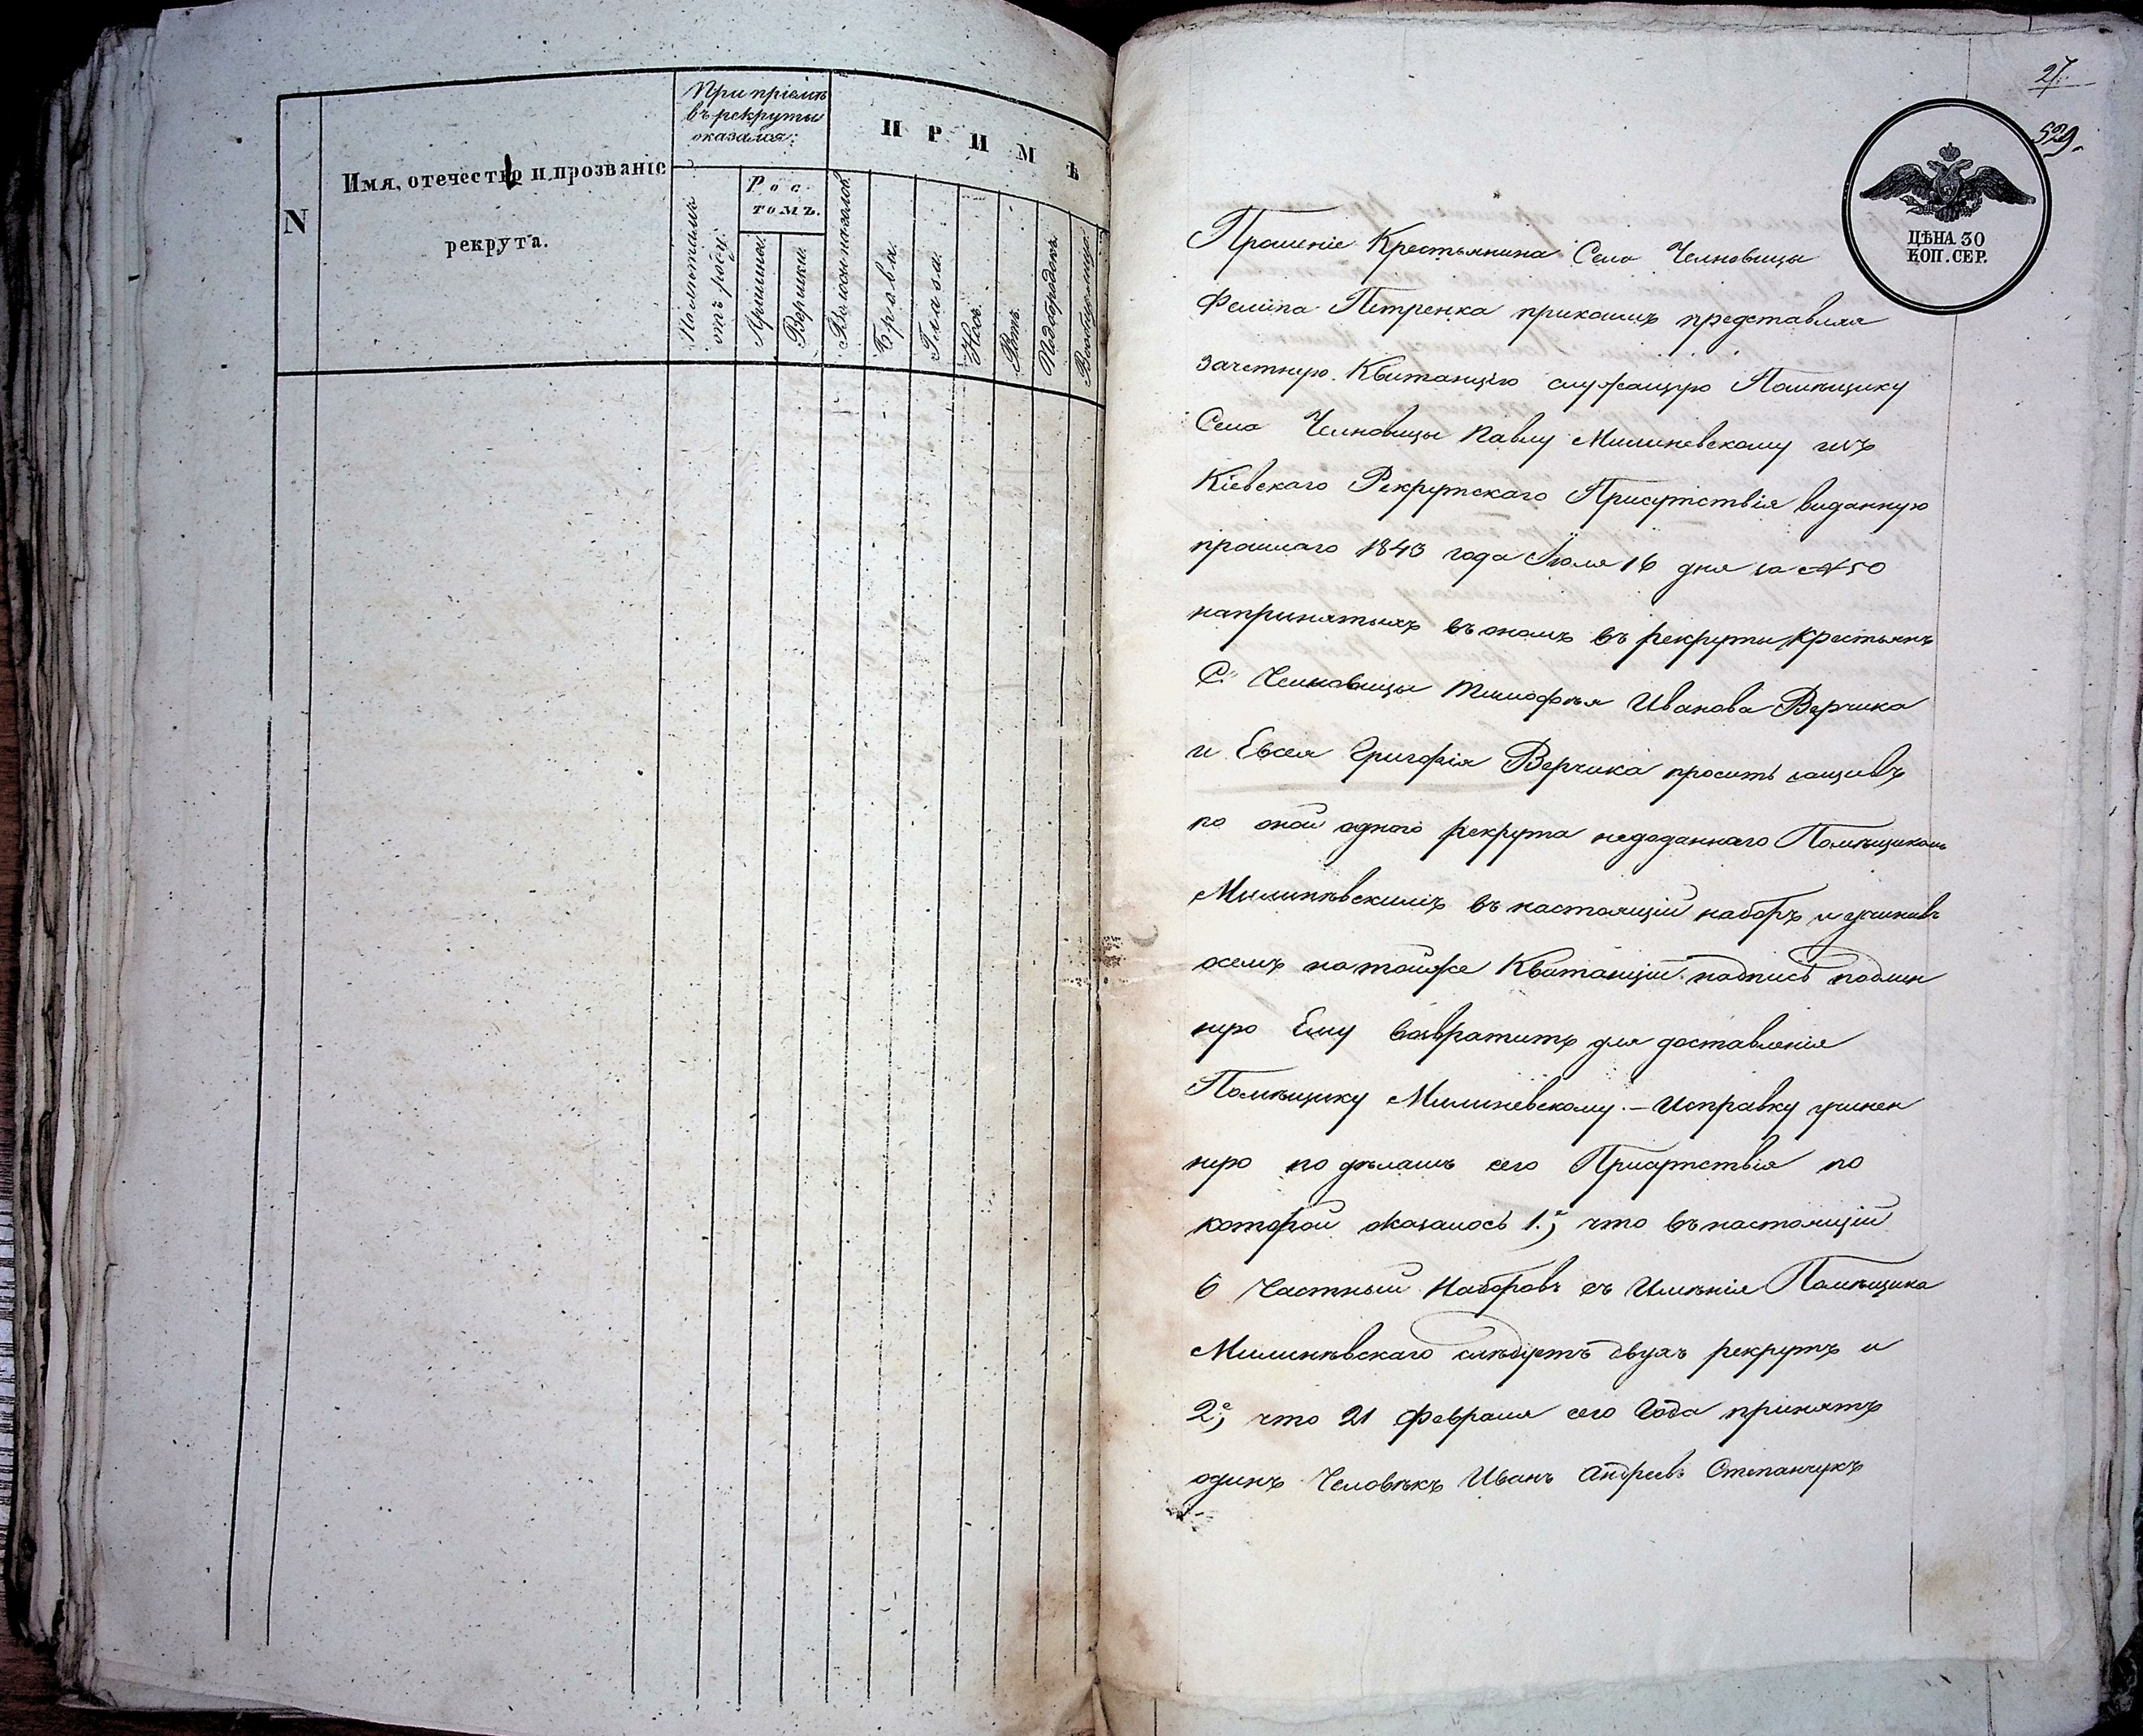 N
Имя, отечество и прозваніе
рекрута.
При пріемѣ
въ рекруты
оказался:
По лѣтамъ
отъ роду.
Рос
томъ.
Аршины.
Вершки.
Волосы на голов.
Брови.
Глаза.
Носъ.
Ротъ.
Подбородокъ.
Вообще лице.
ПРИМѢ
27.
529.
ЦѢНА 30
КОП. СЕР.
Прошеніе Крестьянина Села Челновицы
Филипа Петренка при коимъ представляя
зачетную Квитанцію служащую Помѣщику
Села Челновицы Павлу Милиневскому изъ
Кіевскаго Рекрутскаго Присутствія виданную
прошлаго 1843 года Іюля 16 дня за № 50
напринятыхъ въ ономъ въ рекруты Крестьянъ
С. Челновицы Тимофѣя Иванова Верчика
и Евсея Григорія Верчика проситъ
по оной одного рекрута недоданнаго Помѣщикомъ
Милинѣвскимъ въ настоящій наборъ и учинивъ
осемъ на тойже Квитанціи надпись подлин
ную Ему возвратить для доставленія
Помѣщику Милиневскому. – Исправку учинен
ную по дѣламъ сего Присутствія по
которой оказалось 1.е, что въ настоящій
6 Частный Наборовъ съ Имѣнія Помѣщика
Милинѣвскаго слѣдуетъ двухъ рекрутъ и
2е, что 21 Февраля сего Года принятъ
одинъ Человѣкъ Иванъ Андреевъ Степанчукъ